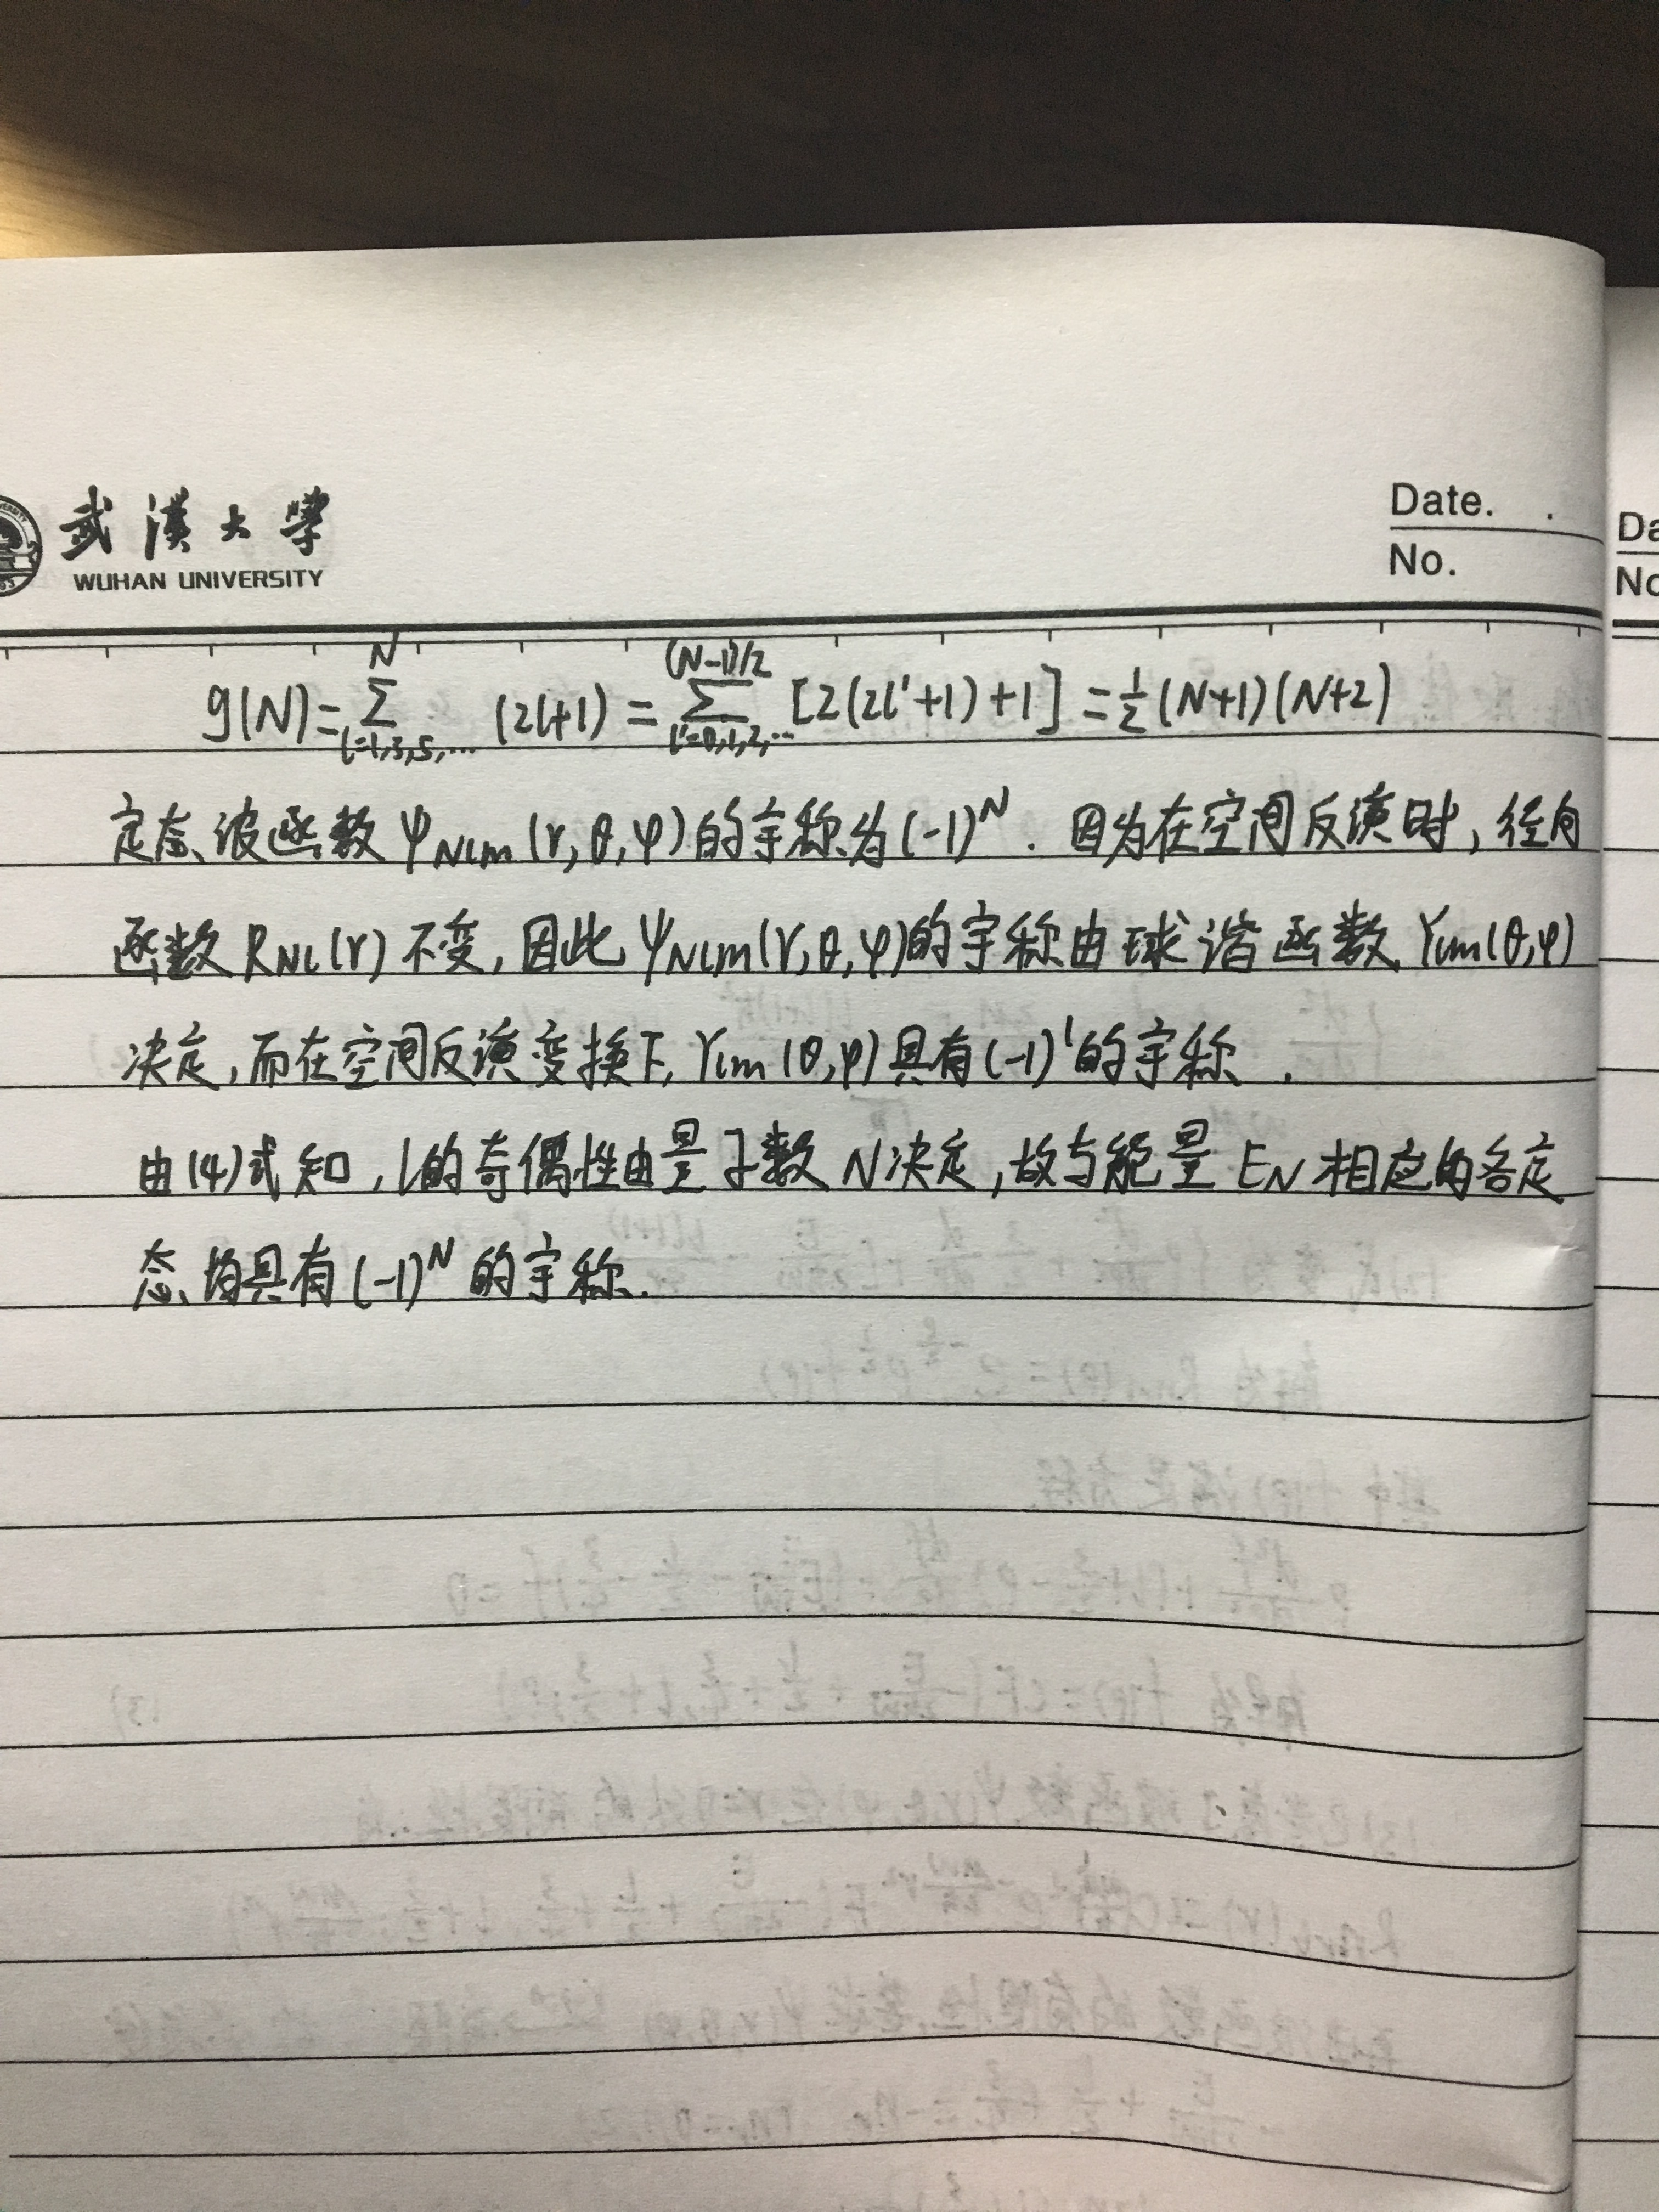 武漢大學
WUHAN UNIVERSITY
Date. .
No.
Da
No
g(N)=∑_{l=1,3,5,…}^{N} (2l+1) = ∑_{l'=0,1,2,…}^{(N-1)/2} [2(2l'+1)+1] = ½(N+1)(N+2)
定态波函数 ψ_{Nlm}(r,θ,φ)的宇称为(-1)^N. 因为在空间反演时,径向
函数 R_{Nl}(r)不变,因此 ψ_{Nlm}(r,θ,φ)的宇称由球谐函数 Y_{lm}(θ,φ)
决定,而在空间反演变换下,Y_{lm}(θ,φ)具有(-1)^l的宇称.
由(4)式知,l的奇偶性由量子数 N决定,故与能量 E_N 相应的各定
态均具有(-1)^N 的宇称.